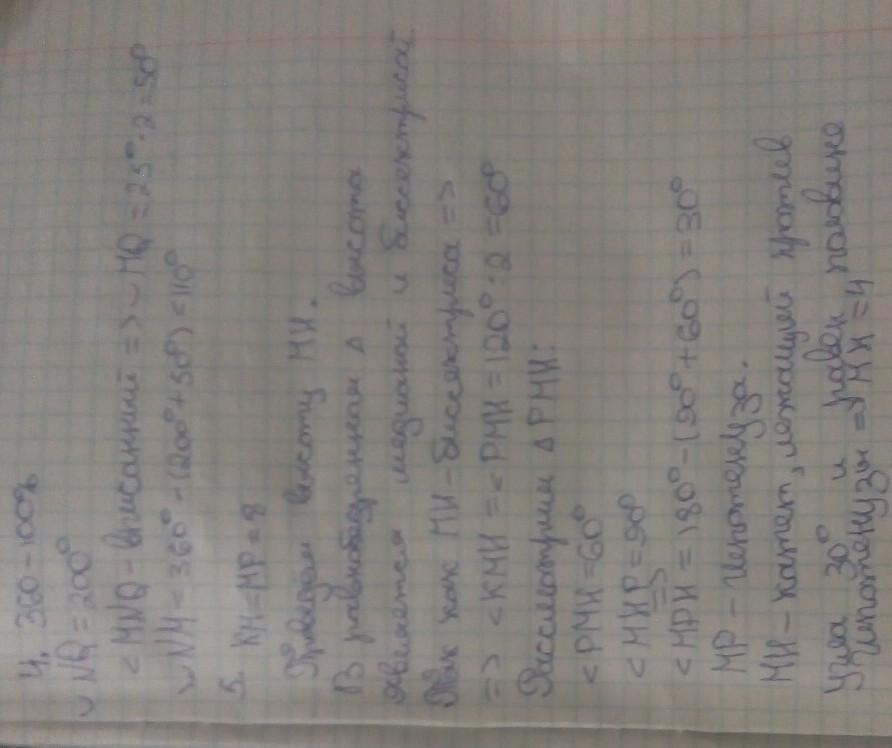 4. 360 – 100%
◡NQ = 200°
<MNQ – вписанный => ◡MQ = 25°·2 = 50°
◡NM = 360° – (200° + 50°) = 110°
5. KM = MP = 8
Проведём высоту MH.
В равнобедренном Δ высота
является медианой и биссектрисой.
Так как MH – биссектриса =>
=> <KMH = <PMH = 120° : 2 = 60°
Рассмотрим ΔPMH:
<PMH = 60°
<MHP = 90°
=>
<MPH = 180° – (90° + 60°) = 30°
MP – гипотенуза.
MH – катет, лежащий против
угла 30° и равен половине
гипотенузы => MH = 4